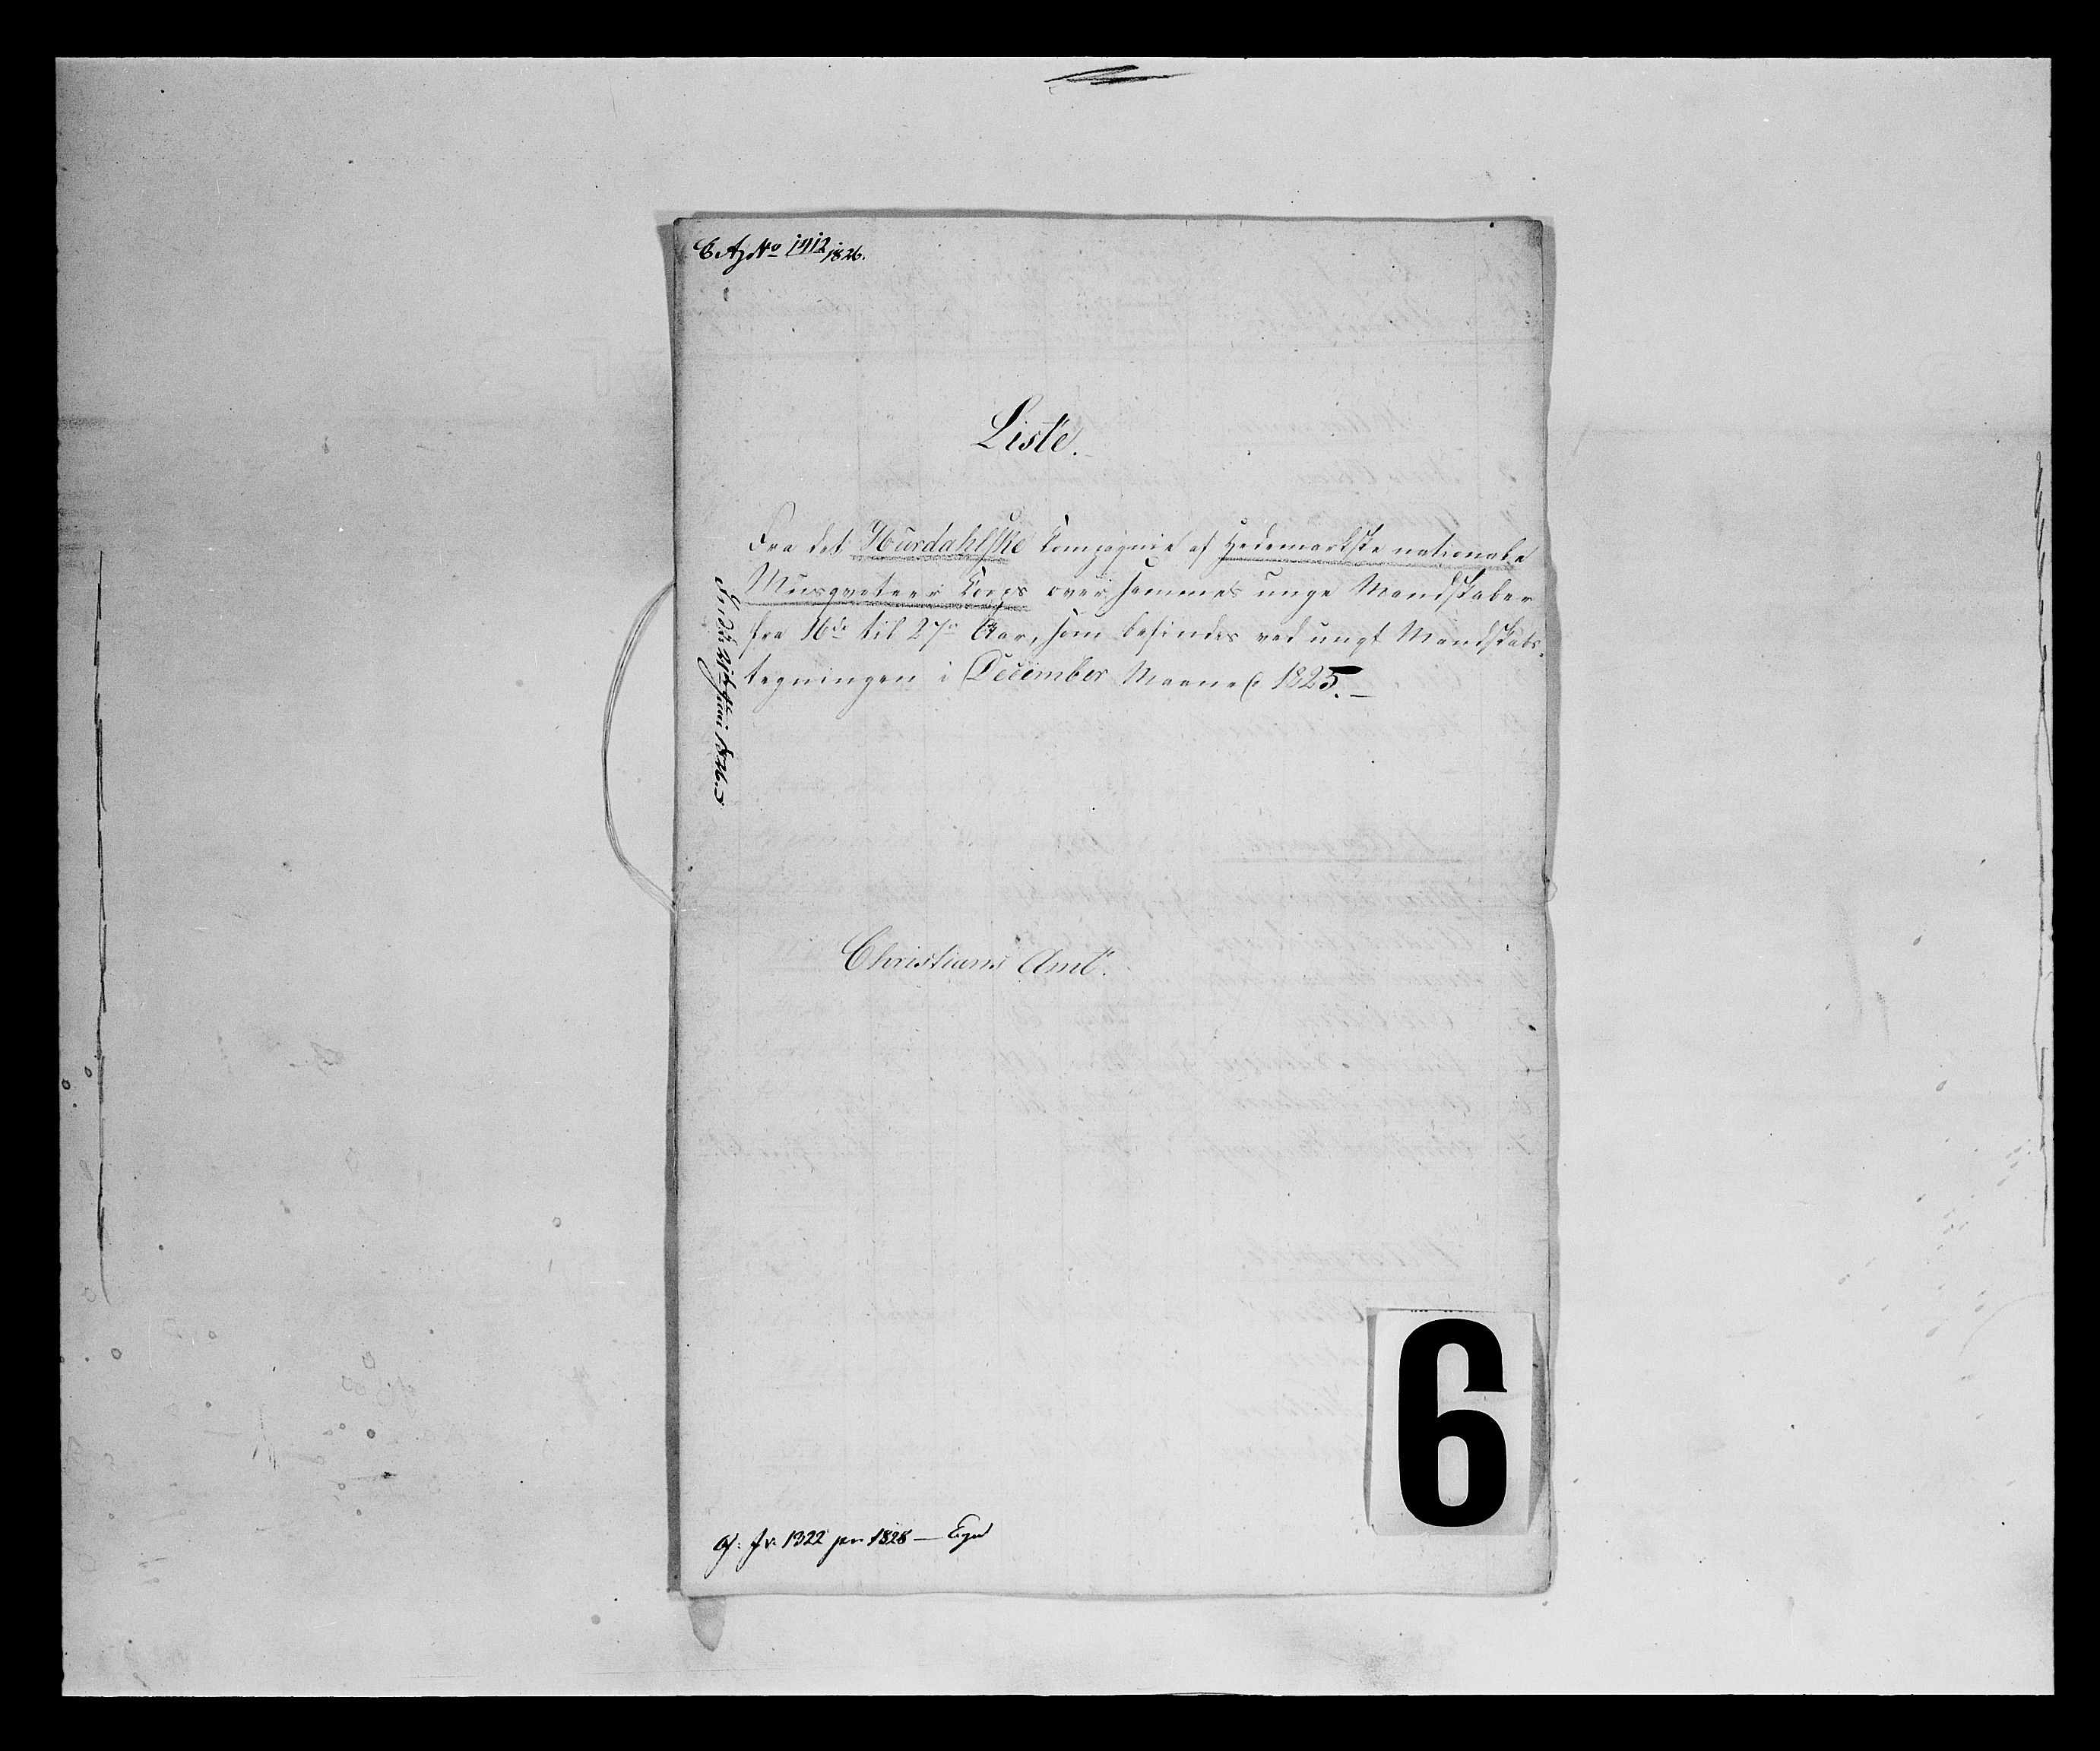 No 1412/1826.
Liste.
Fra det Hurdahlske Compagnie af Hedemarkske nationale
Musqveteer Corps over sammes unge Mandskaber
fra 16de til 27de Aar, som befindes ved ungt Mandskabs-
tegningen i December Maaned 1825.
Juni 1826.
Christians Amt.
Jr. 1322 pro 1828 —
6